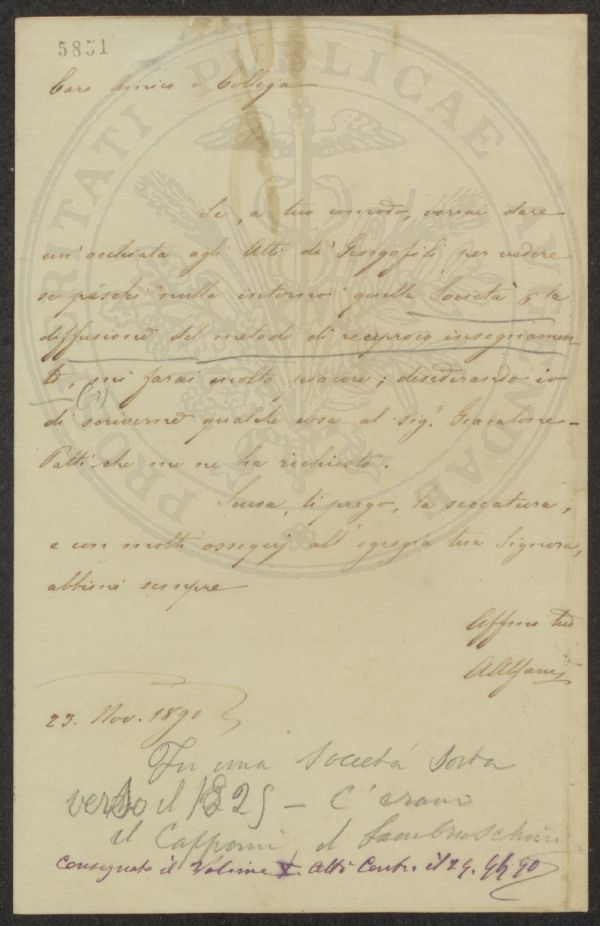 5851
PROSPERITATI PUBLICAE AUGENDAE
Caro Amico e Collega
Se, a tuo comodo, vorrai dare
un'occhiata agli Atti de' Georgofili per vedere
se peschi nulla intorno quella Società p la
diffusione del metodo di reciproco insegnamen-
to, (1) mi farai molto piacere; desiderando io
di scriverne qualche cosa al sig.r Giacalone-
Patti che me ne ha richiesto.
Scusa, ti prego, la seccatura,
e con molti ossequj all'egregia tua Signora,
abbimi sempre
Affmo tuo
AAlfani
23. Nov. 1890
Fu una società sorta
verso il 1825 - C'erano
il Capponi, il Lambruschini
Consegnato il Volume X. Atti Cont. il 29. 9b 90